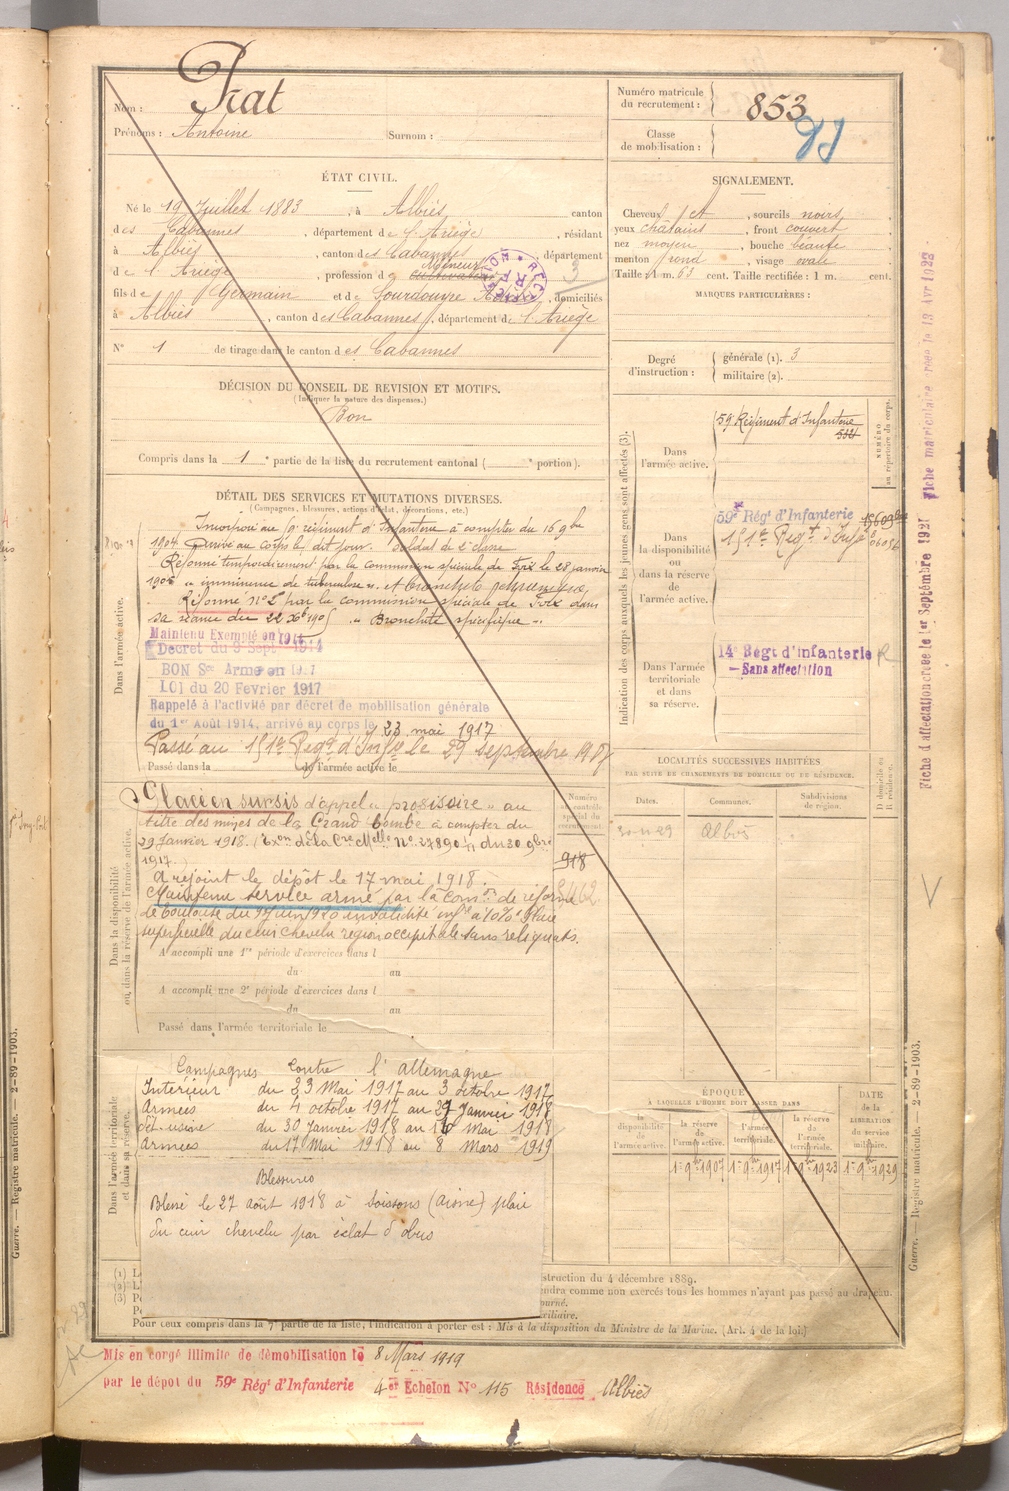 Nom : Prat
Prénoms : Antoine Surnom :
Numéro matricule du recrutement : 853
Classe de mobilisation :
ÉTAT CIVIL.
Né le 19 Juillet 1883, à Albiès, canton
des Cabannes, département de l'Ariège, résidant
à Albiès, canton des Cabannes, département
de l'Ariège, profession de cultivateur mineur
fils de Germain et de Sourdouyre, domiciliés
à Albiès, canton des Cabannes, département de l'Ariège
N° 1 de tirage dans le canton des Cabannes
SIGNALEMENT.
Cheveux et, sourcils noirs,
yeux châtains, front couvert
nez moyen, bouche béante
menton rond, visage ovale
Taille : 1 m. 63 cent. Taille rectifiée : 1 m. cent.
MARQUES PARTICULIÈRES :
Degré d'instruction : générale (1). 3
militaire (2).
DÉCISION DU CONSEIL DE REVISION ET MOTIFS.
(Indiquer la nature des dispenses.)
Bon
Compris dans la 1e partie de la liste du recrutement cantonal ( e portion).
DÉTAIL DES SERVICES ET MUTATIONS DIVERSES.
(Campagnes, blessures, actions d'éclat, décorations, etc.)
Dans l'armée active.
Incorporé au régiment d'Infanterie à compter du 16 9bre
1904 Arrivé au corps le dit jour. Soldat de 2e classe
Réformé temporairement par la commission spéciale de Foix le 28 janvier
1905 "imminence de tuberculose". et bronchite
Réformé n° 2 par la commission spéciale de Foix dans
sa séance du 22 Xbre 1905 "Bronchite spécifique".
Maintenu Exempté en 1914
Decret du 9 Sept 1914
BON Sce Armé en 1917
LOI du 20 Fevrier 1917
Rappelé à l'activité par décret de mobilisation générale
du 1er Août 1914, arrivé au corps le 23 mai 1917
Passé au 151e Régt d'Infie le 29 septembre 1917
Passé dans la de l'armée active le
Indication des corps auxquels les jeunes gens sont affectés (3).
NUMÉRO au répertoire du corps.
Dans l'armée active.
59 Régiment d'Infanterie
Dans la disponibilité ou dans la réserve de l'armée active.
59e Régt d'Infanterie
151e Régt d'Infie
Dans l'armée territoriale et dans sa réserve.
14e Régt d'Infanterie
Sans affectation
LOCALITÉS SUCCESSIVES HABITÉES
PAR SUITE DE CHANGEMENTS DE DOMICILE OU DE RÉSIDENCE.
Dates. Communes. Subdivisions de région. D domicile ou R résidence.
Albiès
Dans la disponibilité ou, dans la réserve de l'armée active.
Numéro au contrôle spécial du recrutement.
918
Placé en sursis d'appel "provisoire" au
titre des mines de la Grand'Combe à compter du
29 Janvier 1918. (Exon de la Cre Melle n° 27890 du 30 9bre
1917.)
A rejoint le dépôt le 17 mai 1918.
Maintenu service armé par la Comon de réforme
de Toulouse du 7 Juin 1920 invalidité infre à 10% Plaie
superficielle du cuir chevelu region occipitale sans reliquats.
A accompli une 1re période d'exercices dans l
du au
A accompli une 2e période d'exercices dans l
du au
Passé dans l'armée territoriale le
Dans l'armée territoriale et dans sa réserve.
Campagnes contre l'allemagne
Intérieur du 23 Mai 1917 au 3 octobre 1917
Armées du 4 octobre 1917 au 29 Janvier 1918
Dét. usine du 30 Janvier 1918 au 16 Mai 1918
Armées du 17 Mai 1918 au 8 Mars 1919
Blessures
Blessé le 27 août 1918 à Soissons (Aisne) plaie
du cuir chevelu par éclat d'obus
ÉPOQUE
À LAQUELLE L'HOMME DOIT PASSER DANS
DATE de la LIBÉRATION du service militaire.
la disponibilité de l'armée active.
la réserve de l'armée active.
l'armée territoriale.
la réserve de l'armée territoriale.
1er 9bre 1907 1er 9bre 1917 1er 9bre 1923 1er 9bre 1929
struction du 4 décembre 1889.
endra comme non exercés tous les hommes n'ayant pas passé au drapeau.
ourné.
xiliaire.
Pour ceux compris dans la 7e partie de la liste, l'indication à porter est : Mis à la disposition du Ministre de la Marine. (Art. 4 de la loi.)
Mis en congé illimité de démobilisation le 8 Mars 1919
par le dépot du 59e Régt d'Infanterie 4er Echelon N° 115 Résidence Albiès
Guerre. — Registre matricule. — 2-89-1903.
Guerre. — Registre matricule. — 2-89-1903.
Fiche d'affectation créée le 1er Septembre 1921 Fiche matriculaire créée le 13 Avr 1922